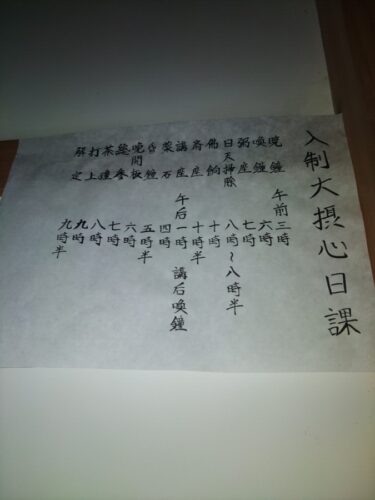 入制大摂心日課
暁鐘 午前三時
喚鐘 六時
粥座 七時
日天掃除 八時~八時半
佛餉 十時
斎座 十時半
講座 午后一時 講后喚鐘
薬石 四時
昏鐘 五時半
晩開板 六時
總参 七時
茶禮 八時
打上 九時
解定 九時半